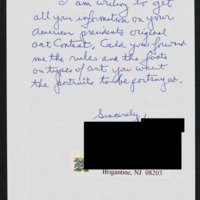 I am writing to get
all your information on your
American presidents original
art Contest, Could you forward
me the rules and the facts
on types of art you want
the portraits to be portrayed.
Sincerely,
Brigantine, NJ 08203